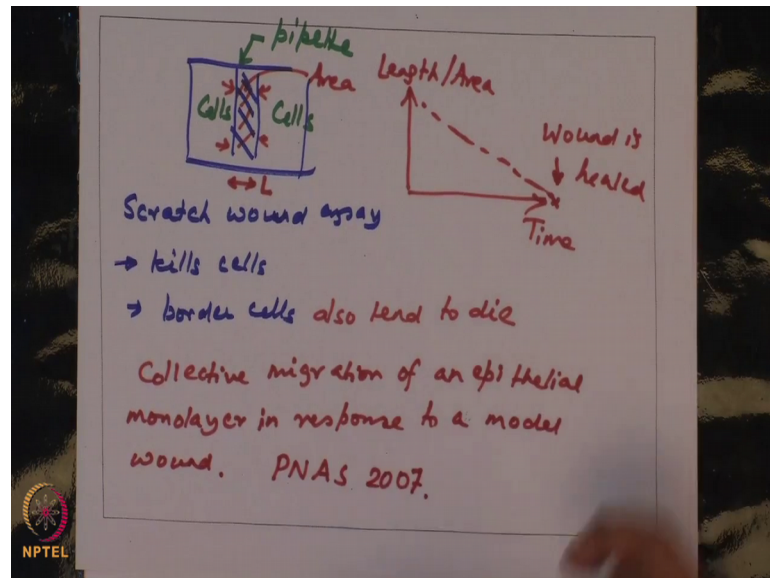 pipette
Area
Cells
Cells
L
Length/Area
Wound is
healed
Time
Scratch wound assay
→ kills cells
→ border cells also tend to die
Collective migration of an epithelial
monolayer in response to a model
wound. PNAS 2007.
NPTEL